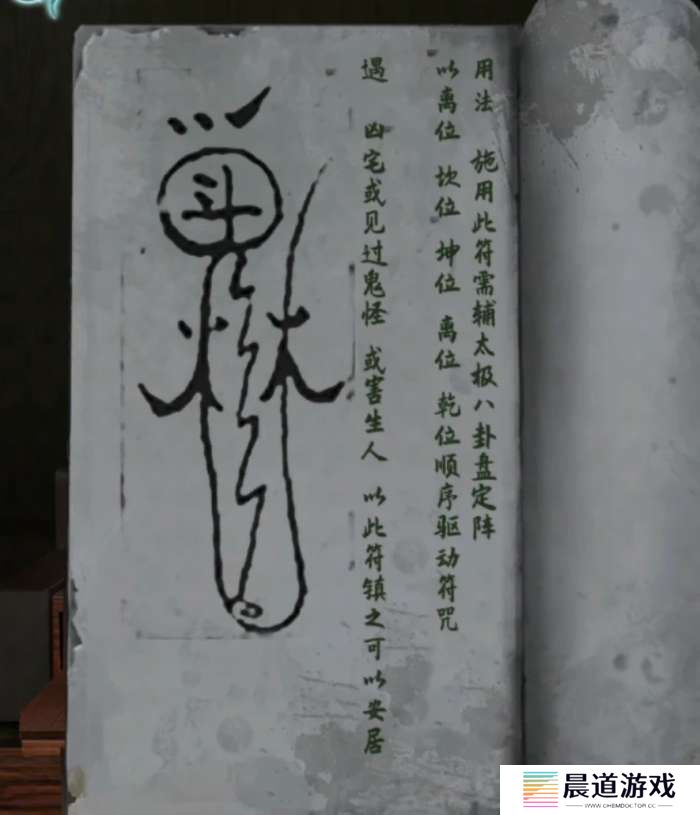 用法 施用此符需辅太极八卦盘定阵
以离位 坎位 坤位 离位 乾位顺序驱动符咒
遇 凶宅或见过鬼怪 或害生人 以此符镇之可以安居
斗
晨道游戏
WWW.CHEMDOCTOR.CC